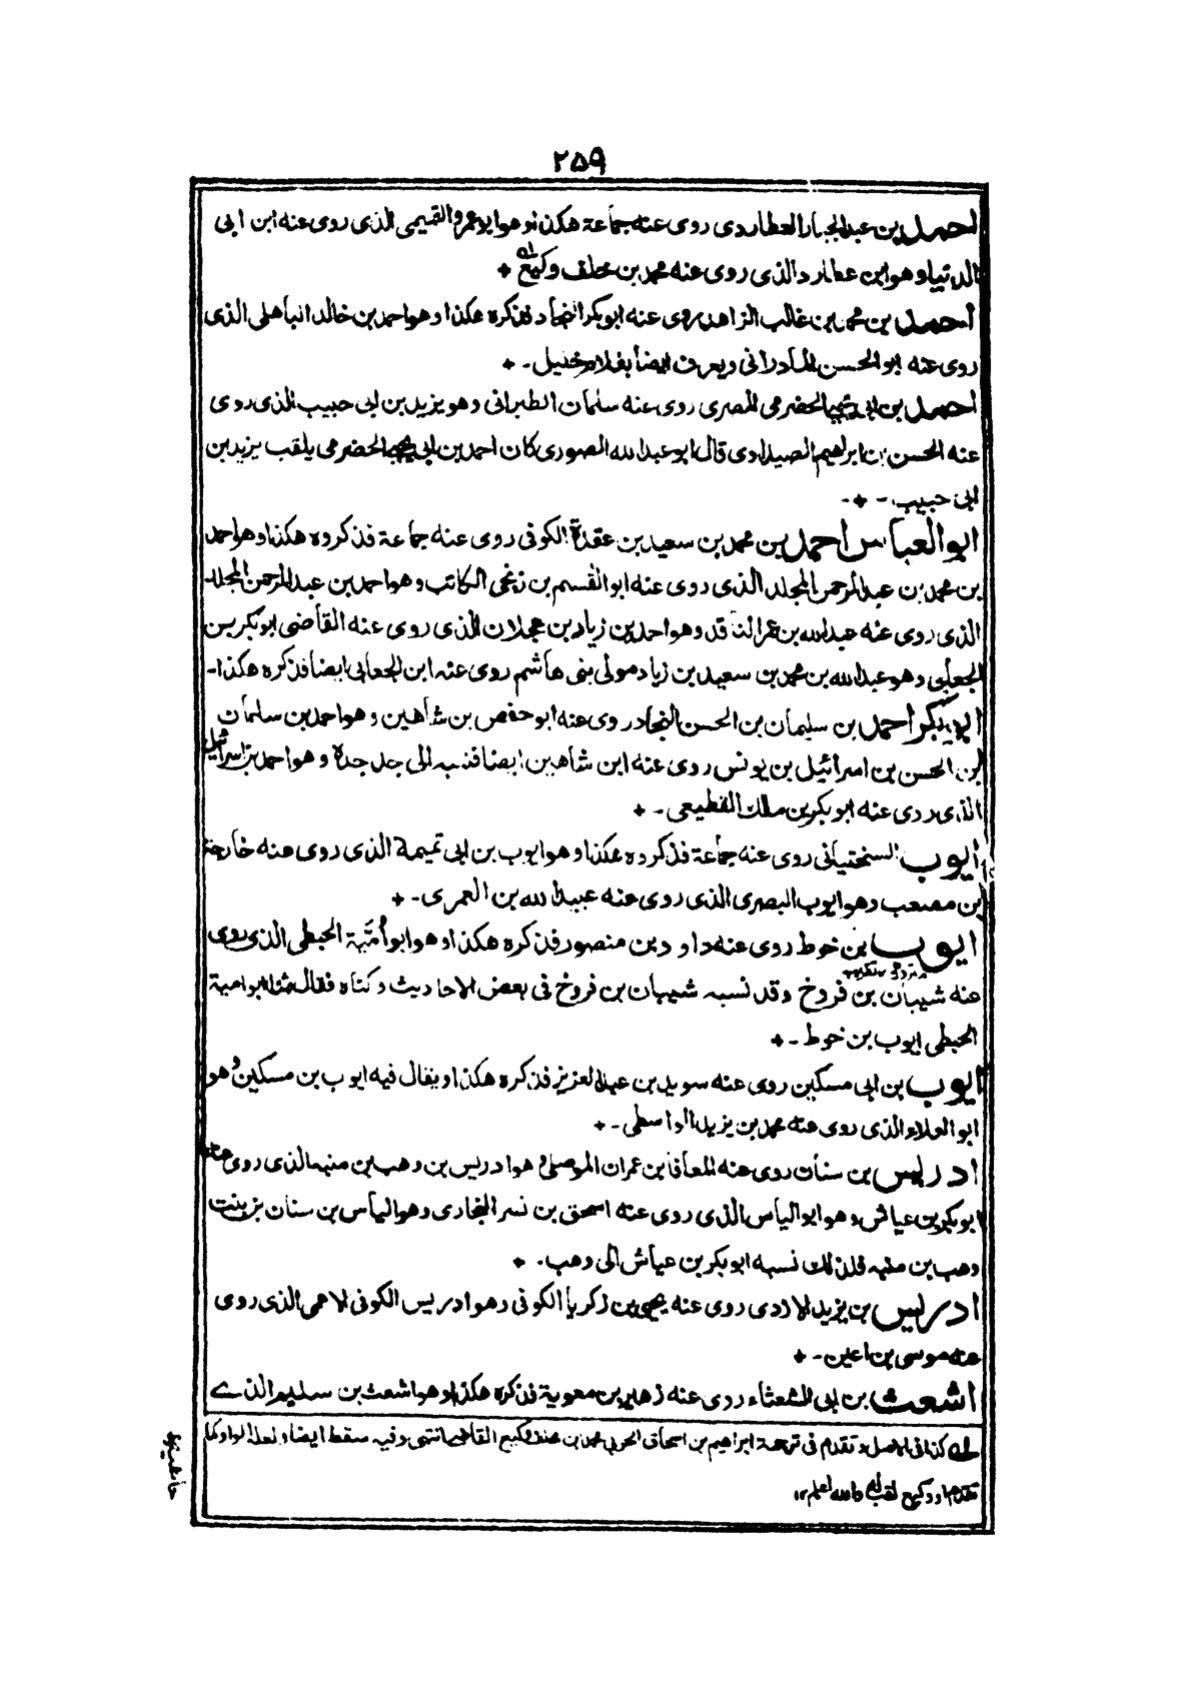 ٢٥٩
احمد بن عبد الجبار العطاردي روى عنه جماعة هكذا وهو ابو عمرو التميمي الذي روى عنه ابن ابي
الدنيا وهو ابن عطارد الذي روى عنه محمد بن مخلف وكيع له +
احمد بن محمد بن غالب الزاهد روى عنه ابو بكر النجاد فذكره هكذا وهو احمد بن خالد الباهلي الذي
روى عنه ابو الحسن المادراني ويعرف ايضا بغلام خليل ـ +
احمد بن ابي يحيى الحضرمي المصري روى عنه سليمان الطبراني وهو يزيد بن ابي حبيب الذي روى
عنه الحسن بن ابراهيم الصيداوي قال ابو عبد الله الصوري كان احمد بن ابي يحيى الحضرمي يلقب يزيد بن
ابي حبيب ـ + ـ
ابو العباس احمد بن محمد بن سعيد بن عقدة الكوفي روى عنه جماعة فذكروه هكذا وهو احمد
بن محمد بن عبد الرحمن المجلد الذي روى عنه ابو القسم بن زنجي الكاتب وهو احمد بن عبد الرحمن المجلد
الذي روى عنه عبد الله بن عمر الناقد وهو احمد بن زياد بن عجلان الذي روى عنه القاضي ابو بكر بن
الجعابي وهو عبد الله بن محمد بن سعيد بن زياد مولى بني هاشم روى عنه ابن الجعابي ايضا فذكره هكذا ـ
ابو بكر احمد بن سليمان بن الحسن النجاد روى عنه ابو حفص بن شاهين وهو احمد بن سلمان
بن الحسن بن اسرائيل بن يونس روى عنه ابن شاهين ايضا فنسبه الى جد جدة وهو احمد بن اسرائيل
الذي روى عنه ابو بكر بن ملك القطيعي ـ +
ايوب السختياني روى عنه جماعة فذكروه هكذا وهو ايوب بن ابي تميمة الذي روى عنه خارجة
بن مصعب وهو ايوب البصري الذي روى عنه عبيد الله بن العمري ـ +
ايوب بن خوط روى عنه داود بن منصور فذكره هكذا وهو ابو أميّة الحبطي الذي روى
عنه شيبان بن فروخ وقد نسبه شيبان بن فروخ في بعض الاحاديث وكناه فقال ثنا ابو امية
الحبطي ايوب بن خوط ـ +
ايوب بن ابي مسكين روى عنه سويد بن عبد العزيز فذكره هكذا ويقال فيه ايوب بن مسكين وهو
ابو العلاء الذي روى عنه محمد بن يزيد الواسطي ـ +
ادريس بن سنان روى عنه المعافا بن عمران الموصلي وهو ادريس بن وهب بن منبه الذي روى عنه
ابو بكر بن عياش وهو ابو الياس الذي روى عنه اسحق بن نسر البخاري وهو الياس بن سنان بن بنت
وهب بن منبه فلذلك نسبه ابو بكر بن عياش الى وهب ـ +
ادريس بن يزيد الاودي روى عنه يحيى بن زكريا الكوفي وهو ادريس الكوفي الاعمى الذي روى
عنه موسى بن اعين ـ +
اشعث بن ابي الشعثاء روى عنه زهير بن معوية فذكره هكذا وهو اشعث بن سليم الذي
له كذا في الاصل وتقدم في ترجمة ابراهيم بن اسحاق الحربي محمد بن وكيع القاضي انتهى وفيه سقط ايضا ولعله الواو كما
تقدم او وكيع لقب له والله اعلم ١٢